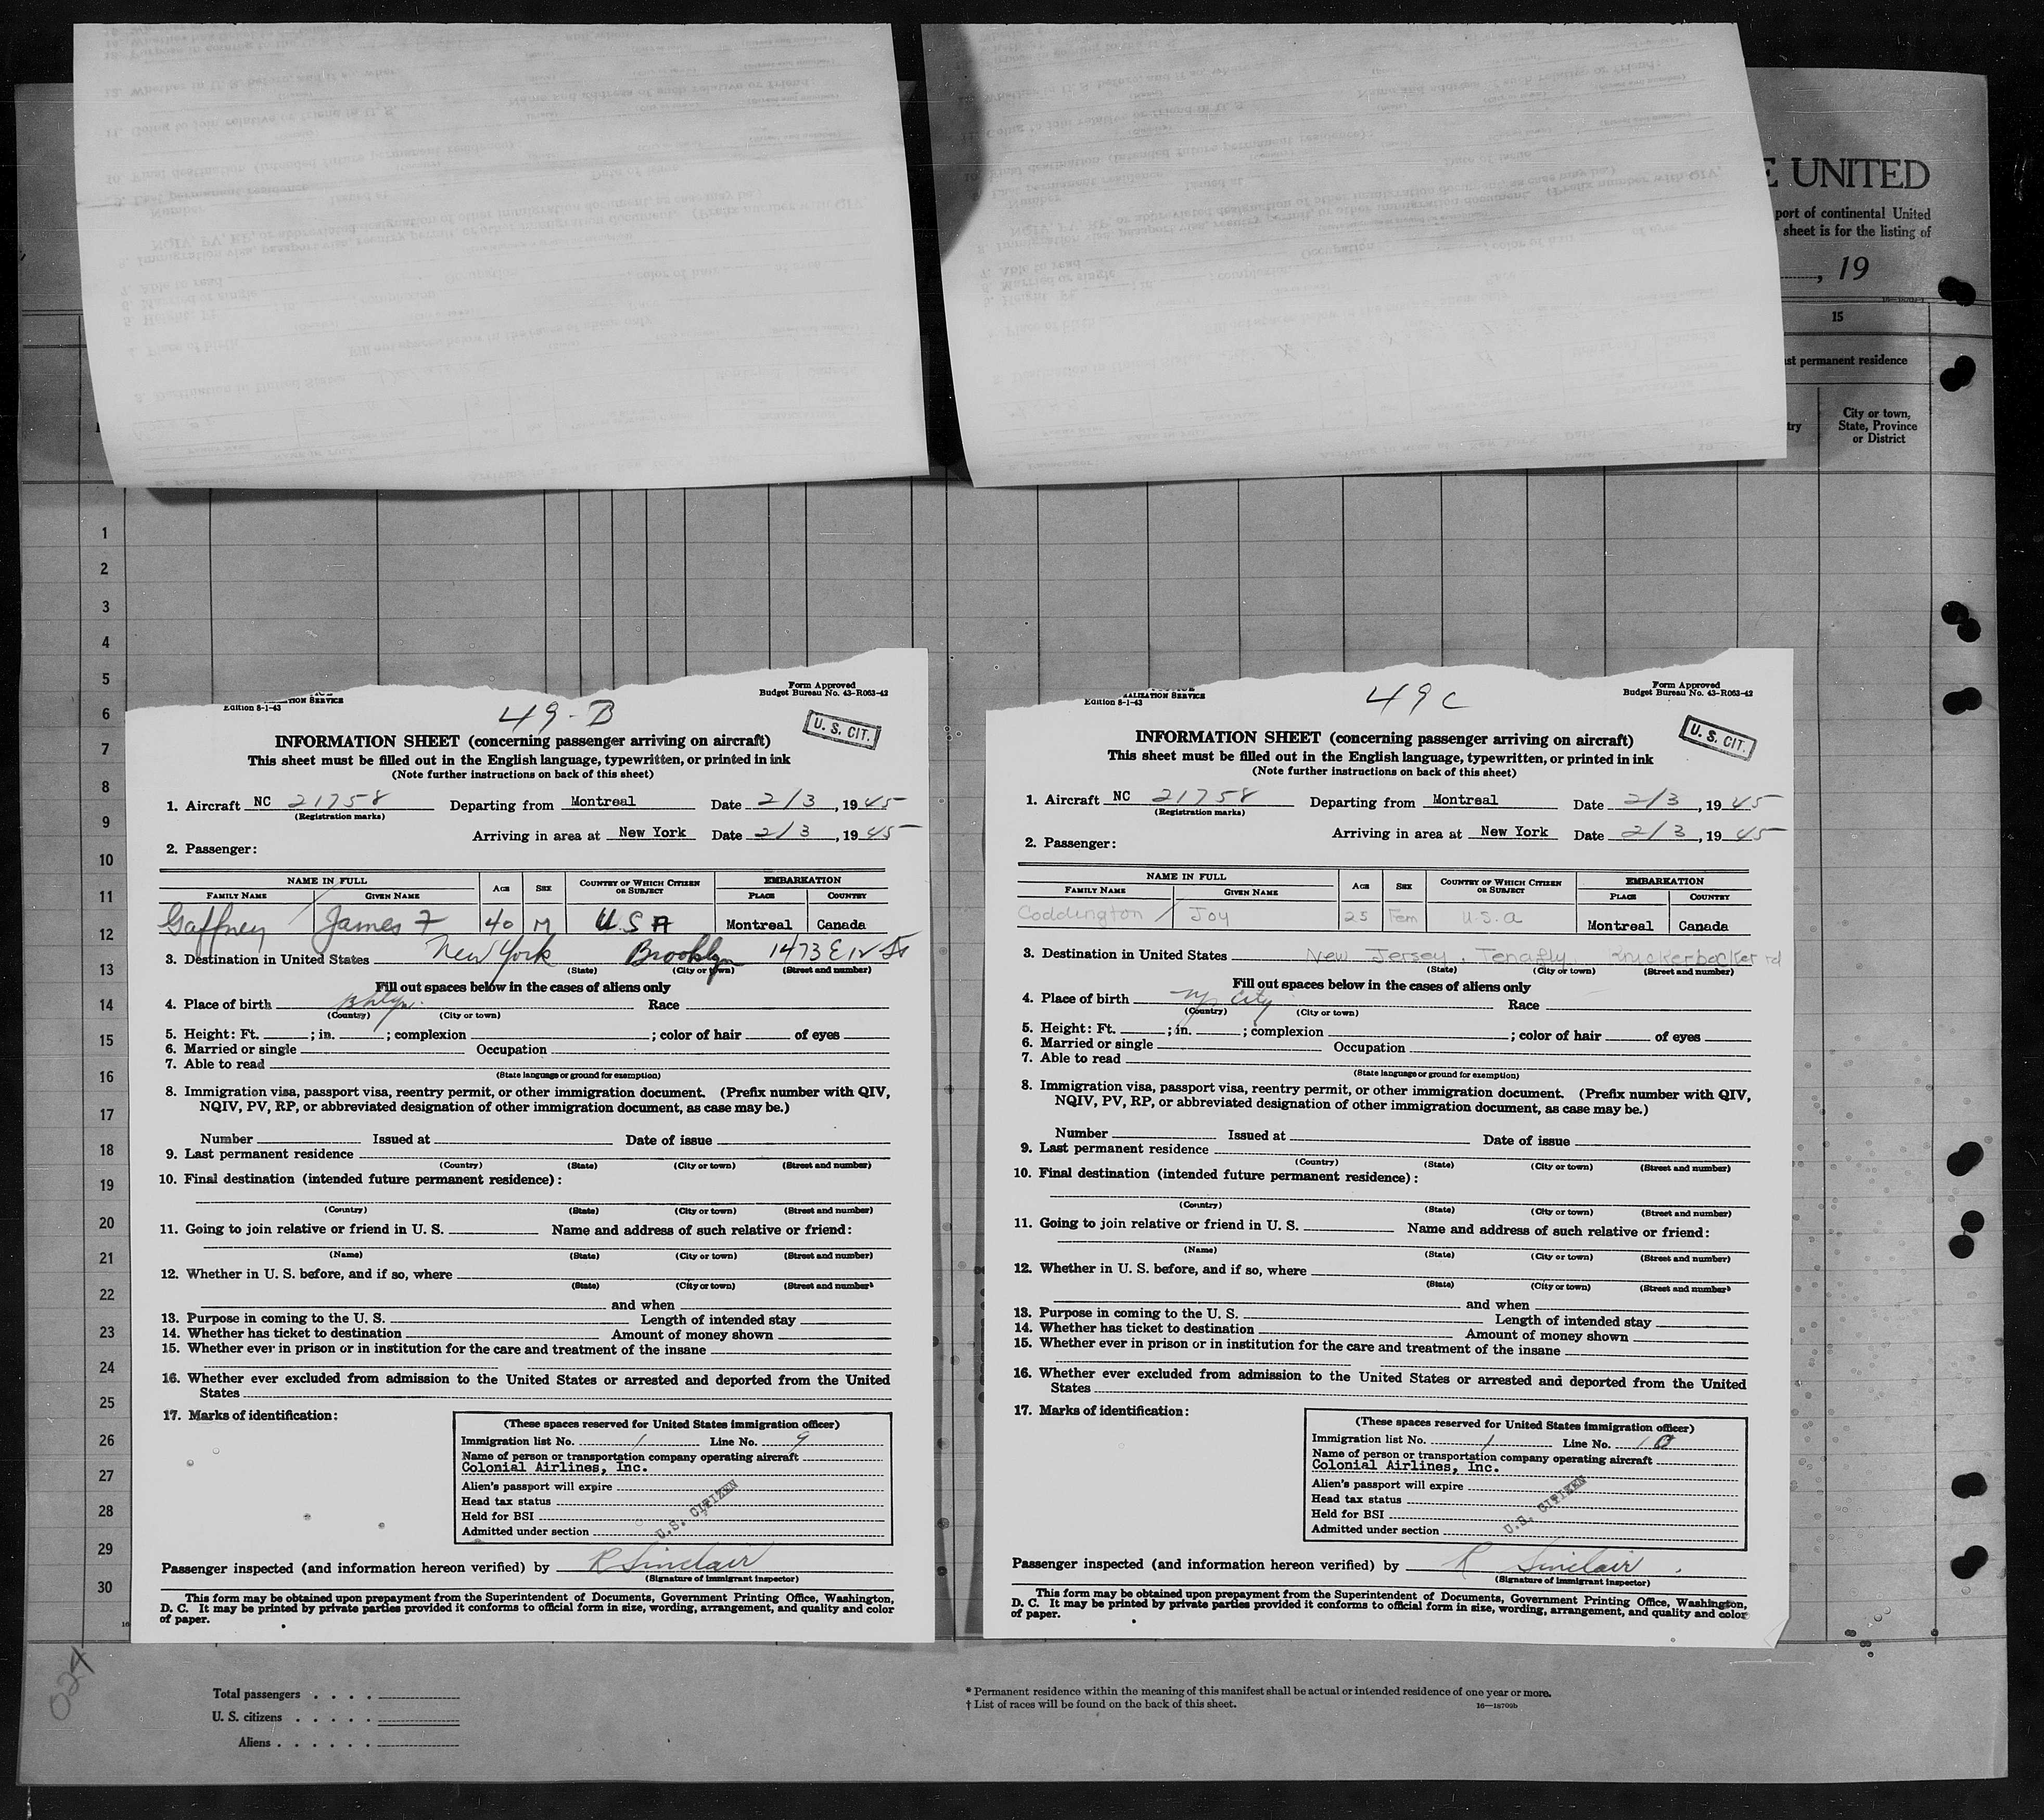 E UNITED
port of continental United
sheet is for the listing of
, 19
15
st permanent residence
try
City or town,
State, Province
or District
1
2
3
4
5
6
7
8
9
10
11
12
13
14
15
16
17
18
19
20
21
22
23
24
25
26
27
28
29
30
TION SERVICE
Edition 8-1-43
Form Approved
Budget Bureau No. 43-R063-42
49-B
U. S. CIT.
INFORMATION SHEET (concerning passenger arriving on aircraft)
This sheet must be filled out in the English language, typewritten, or printed in ink
(Note further instructions on back of this sheet)
1. Aircraft NC 21758 Departing from Montreal Date 2/3, 1945
(Registration marks)
Arriving in area at New York Date 2/3, 1945
2. Passenger:
NAME IN FULL AGE SEX COUNTRY OF WHICH CITIZEN OR SUBJECT EMBARKATION
FAMILY NAME GIVEN NAME PLACE COUNTRY
Gaffney James F 40 M U.S A Montreal Canada
3. Destination in United States New York Brooklyn 1473 E 12 St
(State) (City or town) (Street and number)
Fill out spaces below in the cases of aliens only
4. Place of birth Bklyn. Race
(Country) (City or town)
5. Height: Ft. ; in. ; complexion ; color of hair of eyes
6. Married or single Occupation
7. Able to read
(State language or ground for exemption)
8. Immigration visa, passport visa, reentry permit, or other immigration document. (Prefix number with QIV,
NQIV, PV, RP, or abbreviated designation of other immigration document, as case may be.)
Number Issued at Date of issue
9. Last permanent residence
(Country) (State) (City or town) (Street and number)
10. Final destination (intended future permanent residence):
(Country) (State) (City or town) (Street and number)
11. Going to join relative or friend in U. S. Name and address of such relative or friend:
(Name) (State) (City or town) (Street and number)
12. Whether in U. S. before, and if so, where
(State) (City or town) (Street and number)
and when
13. Purpose in coming to the U. S. Length of intended stay
14. Whether has ticket to destination Amount of money shown
15. Whether ever in prison or in institution for the care and treatment of the insane
16. Whether ever excluded from admission to the United States or arrested and deported from the United
States
17. Marks of identification:
(These spaces reserved for United States immigration officer)
Immigration list No. 1 Line No. 9
Name of person or transportation company operating aircraft
Colonial Airlines, Inc.
Alien's passport will expire
Head tax status
Held for BSI
Admitted under section
U.S. CITIZEN
Passenger inspected (and information hereon verified) by R Sinclair
(Signature of immigrant inspector)
This form may be obtained upon prepayment from the Superintendent of Documents, Government Printing Office, Washington,
D. C. It may be printed by private parties provided it conforms to official form in size, wording, arrangement, and quality and color
of paper.
ALIZATION SERVICE
Edition 8-1-43
Form Approved
Budget Bureau No. 43-R063-42
49C
U. S. CIT.
INFORMATION SHEET (concerning passenger arriving on aircraft)
This sheet must be filled out in the English language, typewritten, or printed in ink
(Note further instructions on back of this sheet)
1. Aircraft NC 21758 Departing from Montreal Date 2/3, 1945
(Registration marks)
Arriving in area at New York Date 2/3, 1945
2. Passenger:
NAME IN FULL AGE SEX COUNTRY OF WHICH CITIZEN OR SUBJECT EMBARKATION
FAMILY NAME GIVEN NAME PLACE COUNTRY
Coddington Joy 25 Fem U.S.a Montreal Canada
3. Destination in United States New Jersey. Tenafly. Knickerbocker rd
(State) (City or town) (Street and number)
Fill out spaces below in the cases of aliens only
4. Place of birth ny city Race
(Country) (City or town)
5. Height: Ft. ; in. ; complexion ; color of hair of eyes
6. Married or single Occupation
7. Able to read
(State language or ground for exemption)
8. Immigration visa, passport visa, reentry permit, or other immigration document. (Prefix number with QIV,
NQIV, PV, RP, or abbreviated designation of other immigration document, as case may be.)
Number Issued at Date of issue
9. Last permanent residence
(Country) (State) (City or town) (Street and number)
10. Final destination (intended future permanent residence):
(Country) (State) (City or town) (Street and number)
11. Going to join relative or friend in U. S. Name and address of such relative or friend:
(Name) (State) (City or town) (Street and number)
12. Whether in U. S. before, and if so, where
(State) (City or town) (Street and number)
and when
13. Purpose in coming to the U. S. Length of intended stay
14. Whether has ticket to destination Amount of money shown
15. Whether ever in prison or in institution for the care and treatment of the insane
16. Whether ever excluded from admission to the United States or arrested and deported from the United
States
17. Marks of identification:
(These spaces reserved for United States immigration officer)
Immigration list No. 1 Line No. 10
Name of person or transportation company operating aircraft
Colonial Airlines, Inc.
Alien's passport will expire
Head tax status
Held for BSI
Admitted under section
U.S. CITIZEN
Passenger inspected (and information hereon verified) by R Sinclair
(Signature of immigrant inspector)
This form may be obtained upon prepayment from the Superintendent of Documents, Government Printing Office, Washington,
D. C. It may be printed by private parties provided it conforms to official form in size, wording, arrangement, and quality and color
of paper.
024
Total passengers
U. S. citizens
Aliens
* Permanent residence within the meaning of this manifest shall be actual or intended residence of one year or more.
† List of races will be found on the back of this sheet.
16—18709b